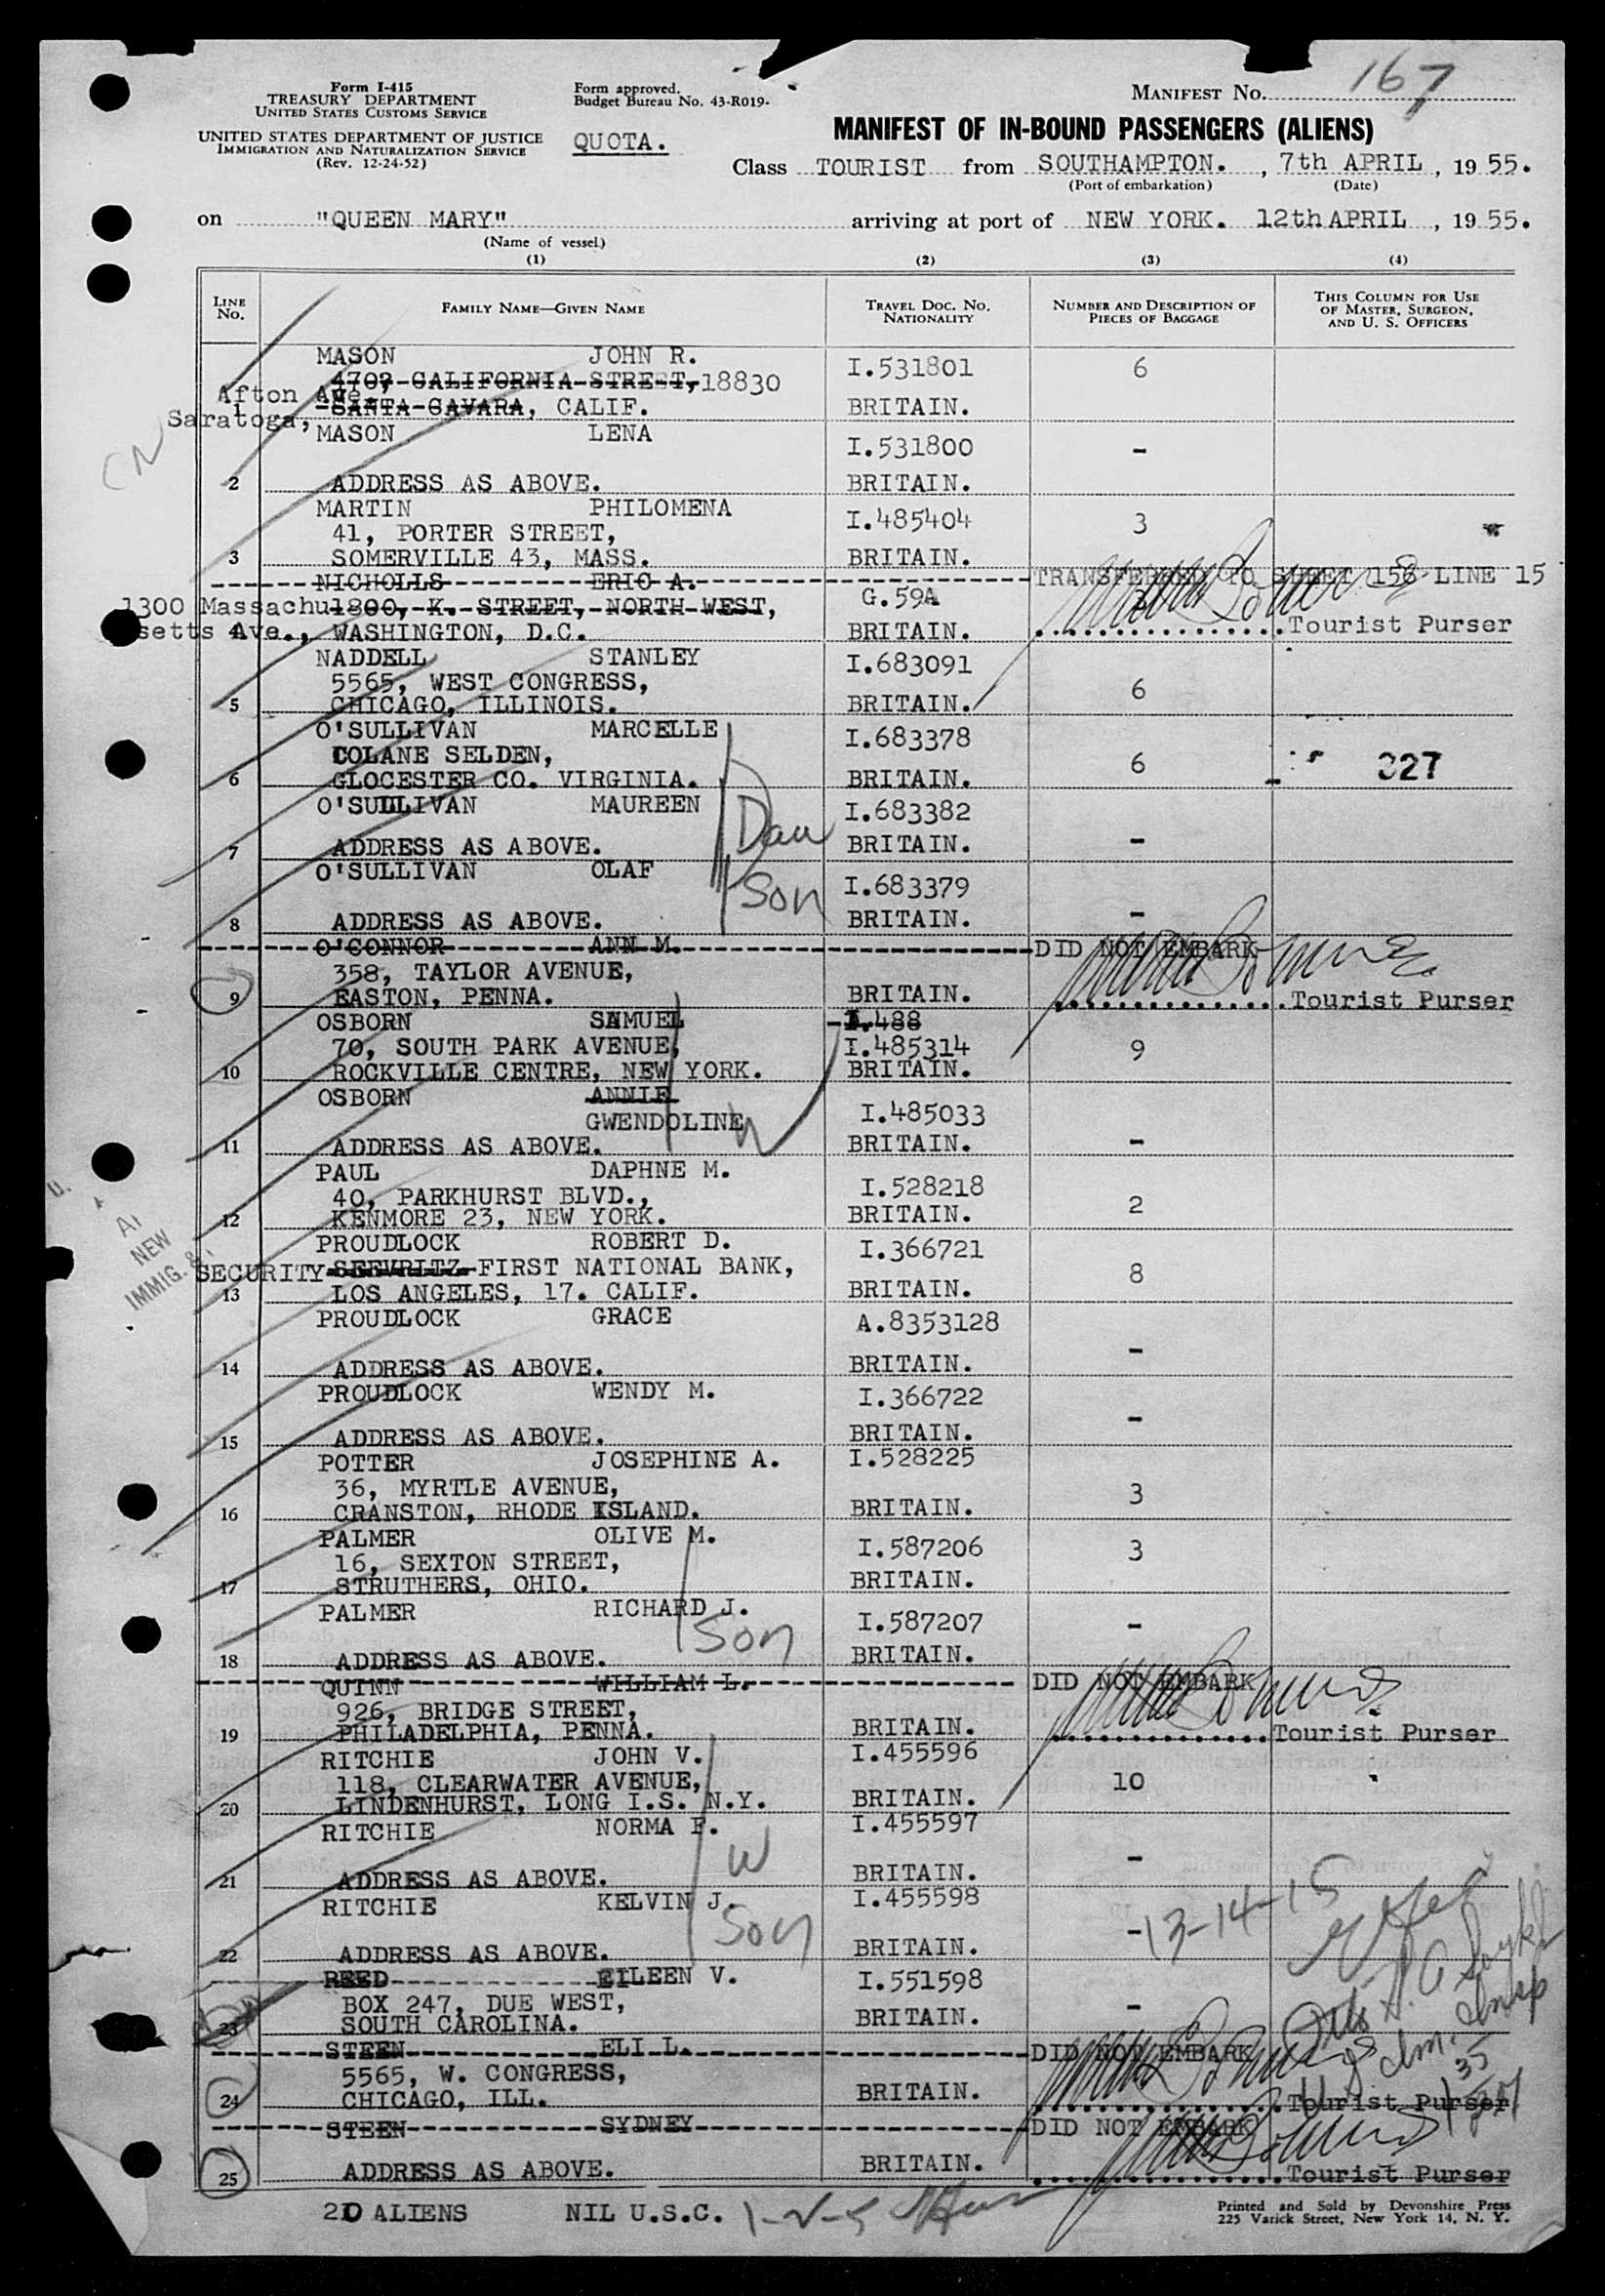 167
Form I-415
TREASURY DEPARTMENT
UNITED STATES CUSTOMS SERVICE
UNITED STATES DEPARTMENT OF JUSTICE
IMMIGRATION AND NATURALIZATION SERVICE
(Rev. 12-24-52)
Form approved.
Budget Bureau No. 43-R019-
QUOTA.
MANIFEST No.
MANIFEST OF IN-BOUND PASSENGERS (ALIENS)
Class TOURIST from SOUTHAMPTON. , 7th APRIL , 19 55.
(Port of embarkation) (Date)
on "QUEEN MARY" arriving at port of NEW YORK. 12th APRIL , 19 55.
(Name of vessel)
(1) (2) (3) (4)
LINE No. FAMILY NAME—GIVEN NAME TRAVEL DOC. NO. NATIONALITY NUMBER AND DESCRIPTION OF PIECES OF BAGGAGE THIS COLUMN FOR USE OF MASTER, SURGEON, AND U. S. OFFICERS
MASON JOHN R. I.531801 6
4702, CALIFORNIA STREET, 18830
Afton Ave.
1 SANTA CAVARA, CALIF. BRITAIN.
Saratoga,
CN
MASON LENA I.531800 -
2 ADDRESS AS ABOVE. BRITAIN.
MARTIN PHILOMENA I.485404 3
41, PORTER STREET,
3 SOMERVILLE 43, MASS. BRITAIN.
NICHOLLS ERIC A. TRANSFERRED TO SHEET 158 LINE 15
1300 Massachu 1800, K. STREET, NORTH WEST, G.59A
setts Ave., 4 WASHINGTON, D.C. BRITAIN. Tourist Purser
NADDELL STANLEY I.683091
5565, WEST CONGRESS, 6
5 CHICAGO, ILLINOIS. BRITAIN.
O'SULLIVAN MARCELLE I.683378
COLANE SELDEN, 6 327
6 GLOCESTER CO. VIRGINIA. BRITAIN.
O'SULLIVAN MAUREEN I.683382
Dau
7 ADDRESS AS ABOVE. BRITAIN. -
O'SULLIVAN OLAF I.683379
Son
8 ADDRESS AS ABOVE. BRITAIN. -
O'CONNOR ANN M. DID NOT EMBARK
358, TAYLOR AVENUE,
9 EASTON, PENNA. BRITAIN. Tourist Purser
OSBORN SAMUEL I.488
70, SOUTH PARK AVENUE, I.485314 9
10 ROCKVILLE CENTRE, NEW YORK. BRITAIN.
OSBORN ANNIE
GWENDOLINE I.485033
W
11 ADDRESS AS ABOVE. BRITAIN. -
PAUL DAPHNE M. I.528218
40, PARKHURST BLVD., 2
12 KENMORE 23, NEW YORK. BRITAIN.
NEW
IMMIG. &
PROUDLOCK ROBERT D. I.366721
SECURITY SEEVRITZ FIRST NATIONAL BANK, 8
13 LOS ANGELES, 17. CALIF. BRITAIN.
PROUDLOCK GRACE A.8353128
-
14 ADDRESS AS ABOVE. BRITAIN.
PROUDLOCK WENDY M. I.366722
-
15 ADDRESS AS ABOVE. BRITAIN.
POTTER JOSEPHINE A. I.528225
36, MYRTLE AVENUE, 3
16 CRANSTON, RHODE ISLAND. BRITAIN.
PALMER OLIVE M. I.587206 3
16, SEXTON STREET,
17 STRUTHERS, OHIO. BRITAIN.
PALMER RICHARD J. I.587207 -
Son
18 ADDRESS AS ABOVE. BRITAIN.
QUINN WILLIAM L. DID NOT EMBARK
926, BRIDGE STREET,
19 PHILADELPHIA, PENNA. BRITAIN. Tourist Purser
RITCHIE JOHN V. I.455596
118, CLEARWATER AVENUE, 10
20 LINDENHURST, LONG I.S. N.Y. BRITAIN.
RITCHIE NORMA F. I.455597
W
21 ADDRESS AS ABOVE. BRITAIN. -
RITCHIE KELVIN J. I.455598
Son
13-14-15
22 ADDRESS AS ABOVE. BRITAIN. -
REED EILEEN V. I.551598
BOX 247, DUE WEST, -
23 SOUTH CAROLINA. BRITAIN.
STEEN ELI L. DID NOT EMBARK
5565, W. CONGRESS,
24 CHICAGO, ILL. BRITAIN. Tourist Purser
STEEN SYDNEY DID NOT EMBARK
25 ADDRESS AS ABOVE. BRITAIN. Tourist Purser
20 ALIENS NIL U.S.C. 1-2-5
Printed and Sold by Devonshire Press
225 Varick Street, New York 14, N. Y.